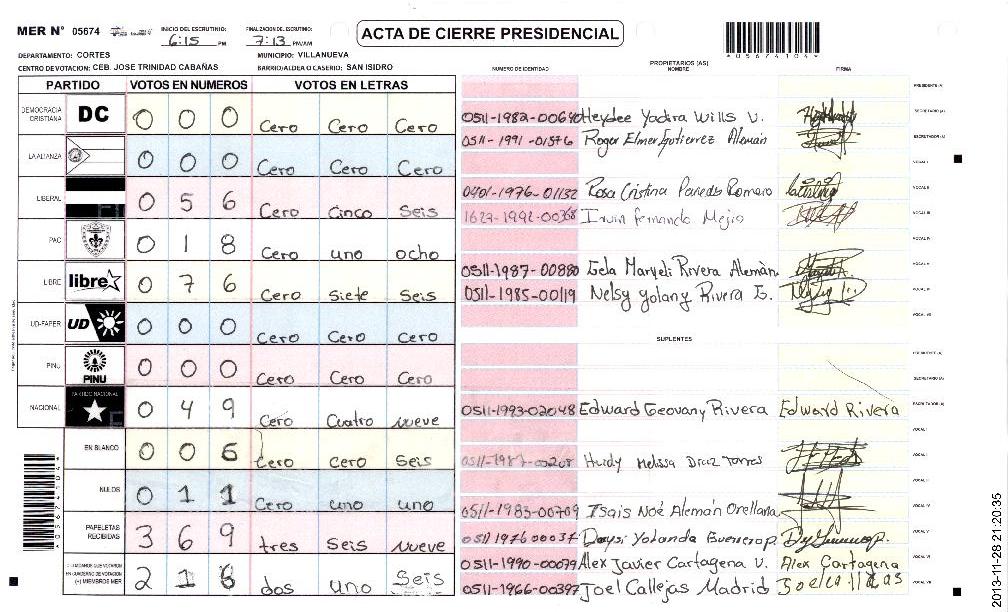 MER N° 05674
INICIO DEL ESCRUTINIO:
6:15 PM
FINALIZACION DEL ESCRUTINIO:
7:13 PM/AM
ACTA DE CIERRE PRESIDENCIAL
*05674104*
DEPARTAMENTO: CORTES
MUNICIPIO: VILLANUEVA
CENTRO DE VOTACION: CEB. JOSE TRINIDAD CABAÑAS
BARRIO/ALDEA O CASERIO: SAN ISIDRO
PARTIDO VOTOS EN NUMEROS VOTOS EN LETRAS
DEMOCRACIA CRISTIANA DC 0 0 0 Cero Cero Cero
LA ALIANZA 0 0 0 Cero Cero Cero
LIBERAL 0 5 6 Cero Cinco Seis
PAC 0 1 8 Cero uno ocho
LIBRE libre 0 7 6 Cero Siete Seis
UD-FAPER UD 0 0 0 Cero Cero Cero
PINU PINU 0 0 0 Cero Cero Cero
NACIONAL PARTIDO NACIONAL 0 4 9 Cero Cuatro Nueve
EN BLANCO 0 0 6 Cero Cero Seis
NULOS 0 1 1 Cero uno uno
PAPELETAS RECIBIDAS 3 6 9 tres Seis Nueve
CIUDADANOS QUE VOTARON EN CUADERNO DE VOTACION (+) MIEMBROS MER 2 1 6 dos uno Seis
*05674104*
NUMERO DE IDENTIDAD
PROPIETARIOS (AS)
NOMBRE
FIRMA
PRESIDENTE (A)
Heydee Yadira Wills V. SECRETARIO (A)
0511-1991-01576 Roger Elmer Gutierrez Alemán ESCRUTADOR (A)
VOCAL I
0401-1976-01132 Rosa Cristina Paredes Romero VOCAL II
1627-1992-00368 Irvin fernando Mejio VOCAL III
VOCAL IV
0511-1987-00880 Gela Maryeli Rivera Alemàn VOCAL V
0511-1985-00119 Nelsy yolany Rivera G. VOCAL VI
VOCAL VII
SUPLENTES
PRESIDENTE (A)
SECRETARIO (A)
0511-1993-02048 Edward Geovany Rivera Edward Rivera ESCRUTADOR (A)
VOCAL I
Melissa Diaz Torres VOCAL II
VOCAL III
0511-1983-00709 Isais Noé Alemán Orellana VOCAL IV
0511 1976 00037 Daysi Yolanda Guerrero P. VOCAL V
0511-1990-00079 Alex Javier Cartagena V. Alex Cartagena VOCAL VI
0511-1966-00397 Joel Callejas Madrid Joel Callejas VOCAL VII
2013-11-28 21:20:35